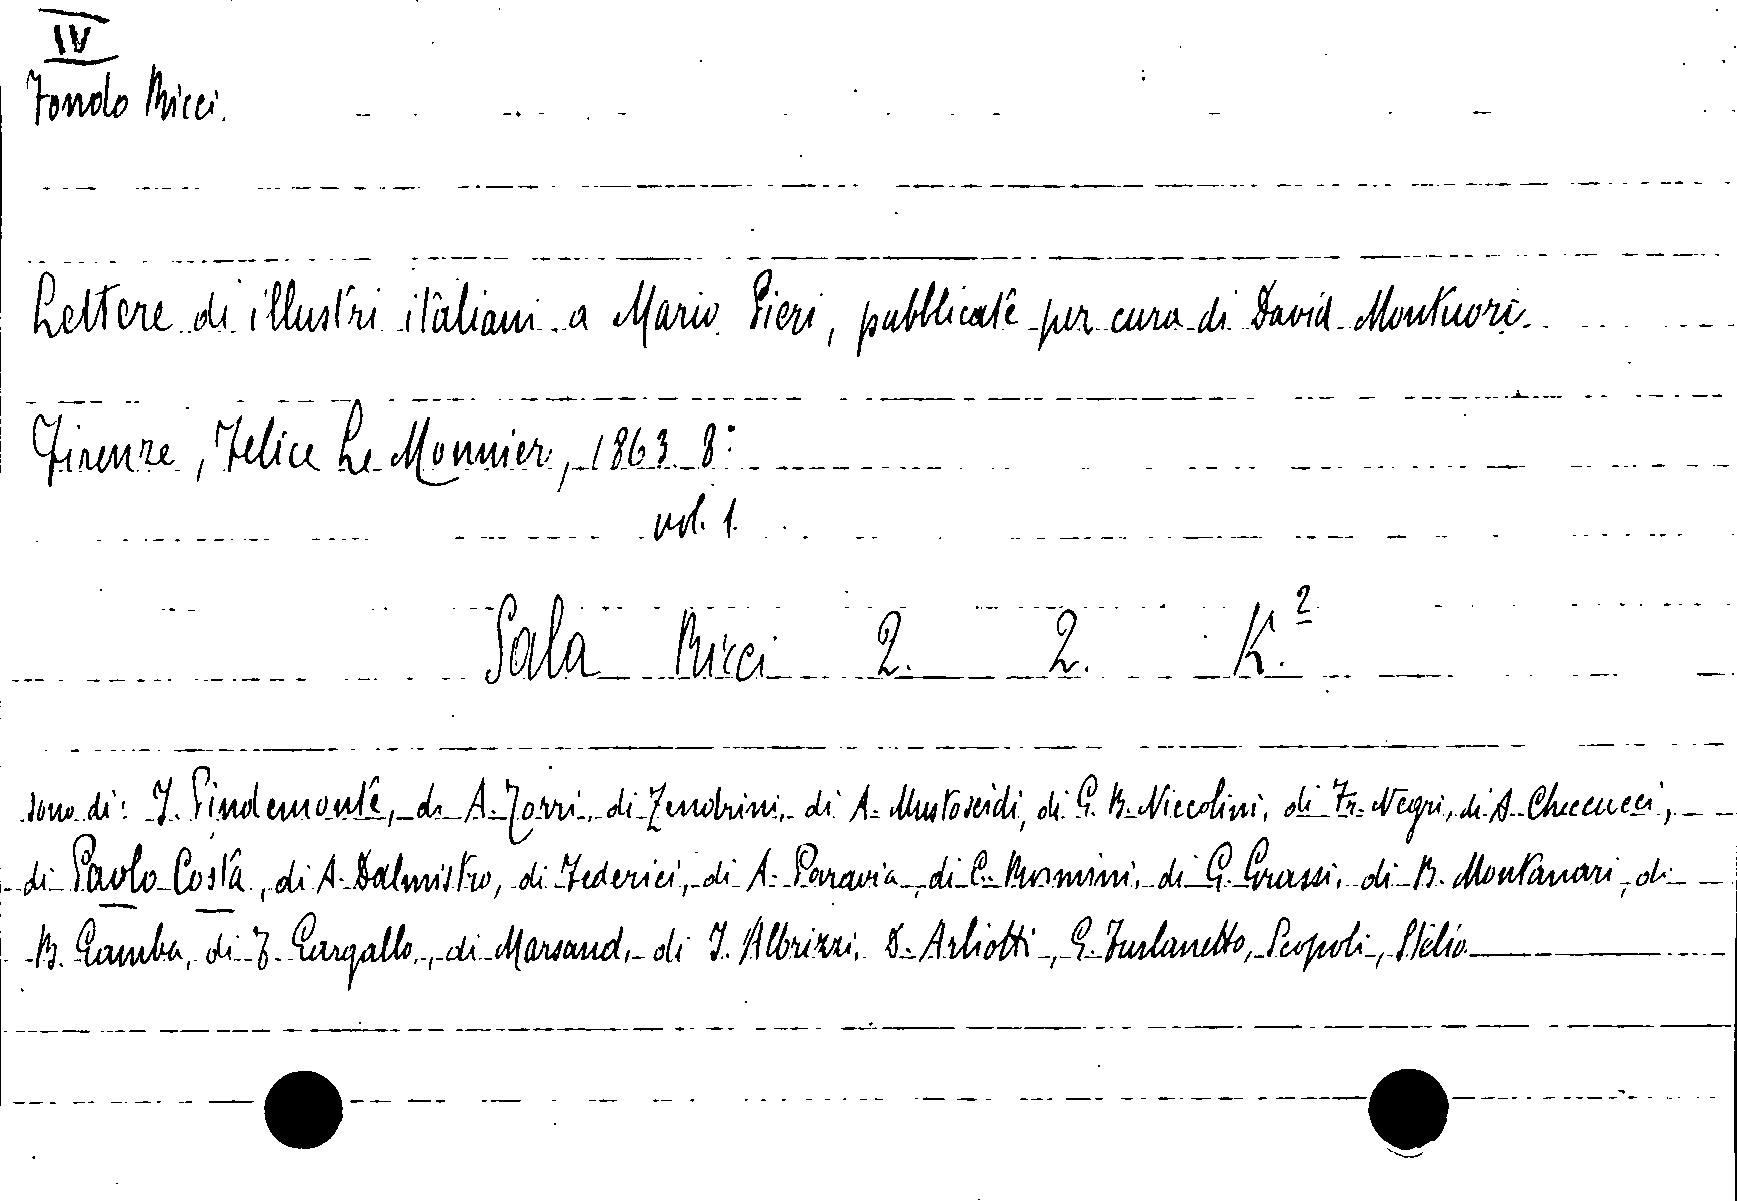 IV
Fondo Ricci.
Lettere di illustri italiani a Mario Pieri, pubblicate per cura di David Montuori.
Firenze, Felice Le Monnier, 1863. 8°
vol. 1.
Sala Ricci 2. 2. K.2
sono di: I. Pindemonte, di A. Torri, di Zendrini, di A. Mustoxidi, di G. B. Niccolini, di Fr. Negri, di A. Checcucci,
di Paolo Costa, di A. Dalmistro, di Federici, di A. Paravia, di C. Rosmini, di G. Grassi, di B. Montanari, di
B. Gamba, di T. Gargallo, di Marsand, di I. Albrizzi, D. Arliotti, G. Furlanetto, Scopoli, Stelio